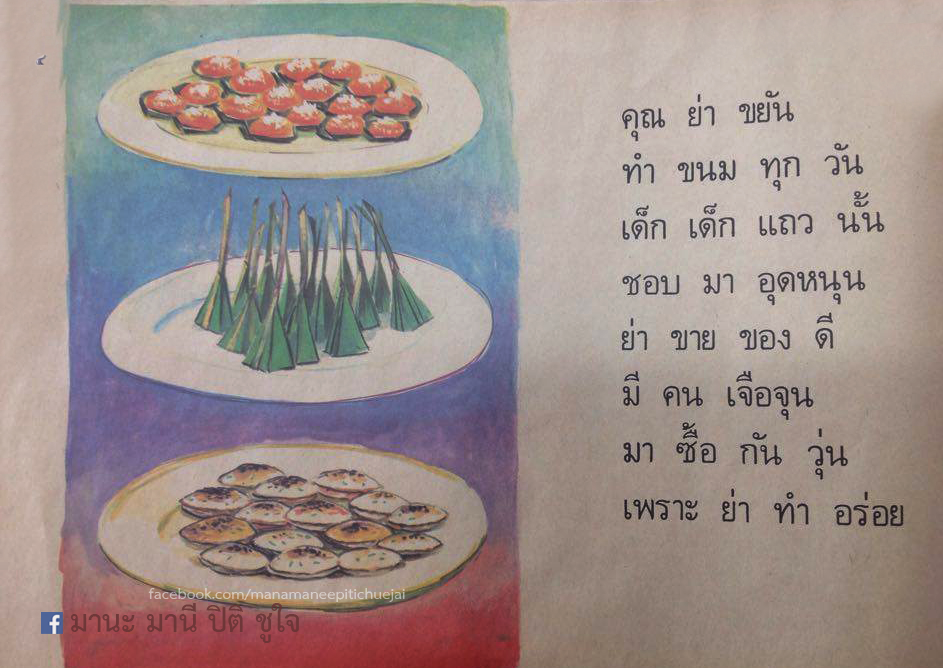 ๙
คุณ ย่า ขยัน
ทำ ขนม ทุก วัน
เด็ก เด็ก แถว นั้น
ชอบ มา อุดหนุน
ย่า ขาย ของ ดี
มี คน เจือจุน
มา ซื้อ กัน วุ่น
เพราะ ย่า ทำ อร่อย
facebook.com/manamaneepitichuejai
มานะ มานี ปิติ ชูใจ